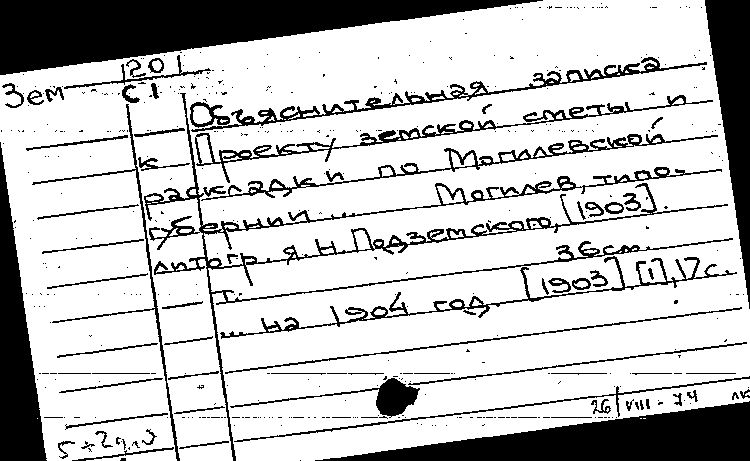 Зем 201
С1
Объяснительная записка
к Проекту земской сметы и
раскладки по Могилевской
губернии... Могилев, типо-
литогр. Я. Н. Подземского, [1903].
т. 36см.
... на 1904 год. [1903]. [1], 17с.
26/VIII-74